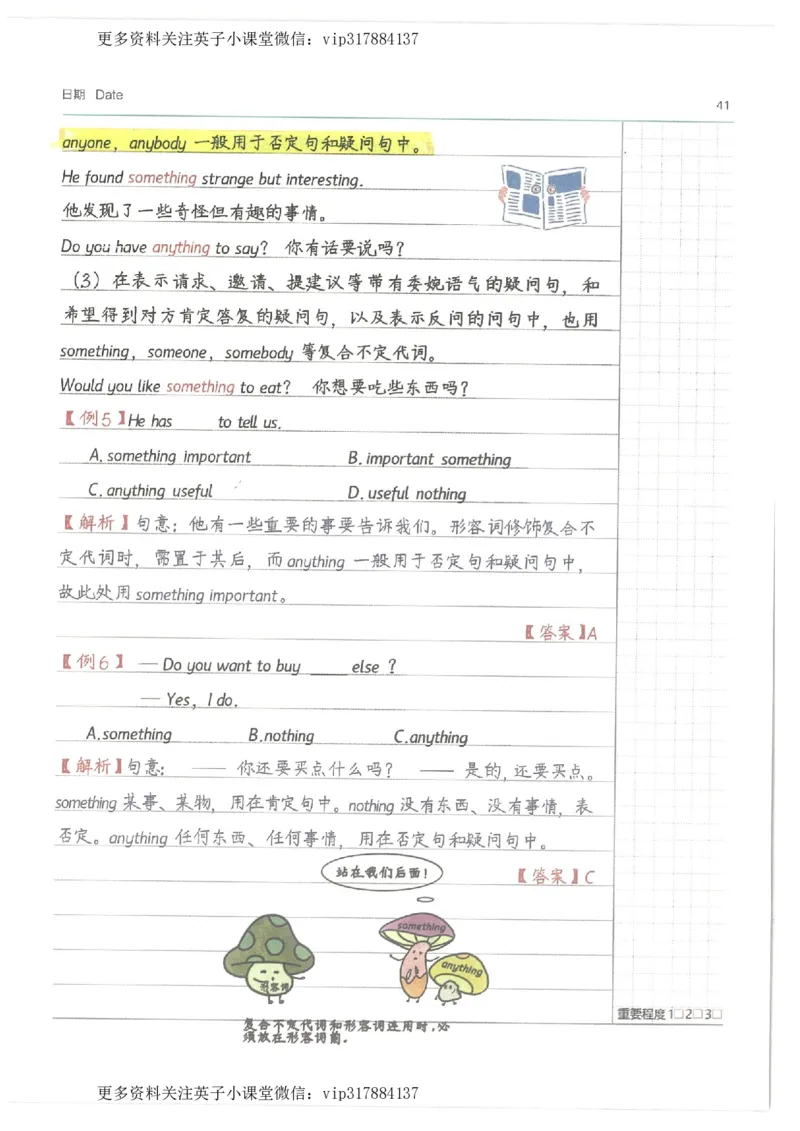 更多资料关注英子小课堂微信：vip317884137
日期 Date
41
anyone，anybody 一般用于否定句和疑问句中。
He found something strange but interesting.
他发现了一些奇怪但有趣的事情。
Do you have anything to say? 你有话要说吗？
（3）在表示请求、邀请、提建议等带有委婉语气的疑问句，和
希望得到对方肯定答复的疑问句，以及表示反问的问句中，也用
something，someone，somebody 等复合不定代词。
Would you like something to eat? 你想要吃些东西吗？
【例5】He has ___ to tell us.
A. something important B. important something
C. anything useful D. useful nothing
【解析】句意：他有一些重要的事要告诉我们。形容词修饰复合不
定代词时，需置于其后，而 anything 一般用于否定句和疑问句中，
故此处用 something important。
【答案】A
【例6】 — Do you want to buy ____ else ?
— Yes, I do.
A.something B.nothing C.anything
【解析】句意：—— 你还要买点什么吗？ —— 是的，还要买点。
something 某事、某物，用在肯定句中。nothing 没有东西、没有事情，表
否定。anything 任何东西、任何事情，用在否定句和疑问句中。
站在我们后面！
【答案】C
something
anything
形容词
重要程度 1□2□3□
复合不定代词和形容词连用时，必
须放在形容词前。
更多资料关注英子小课堂微信：vip317884137